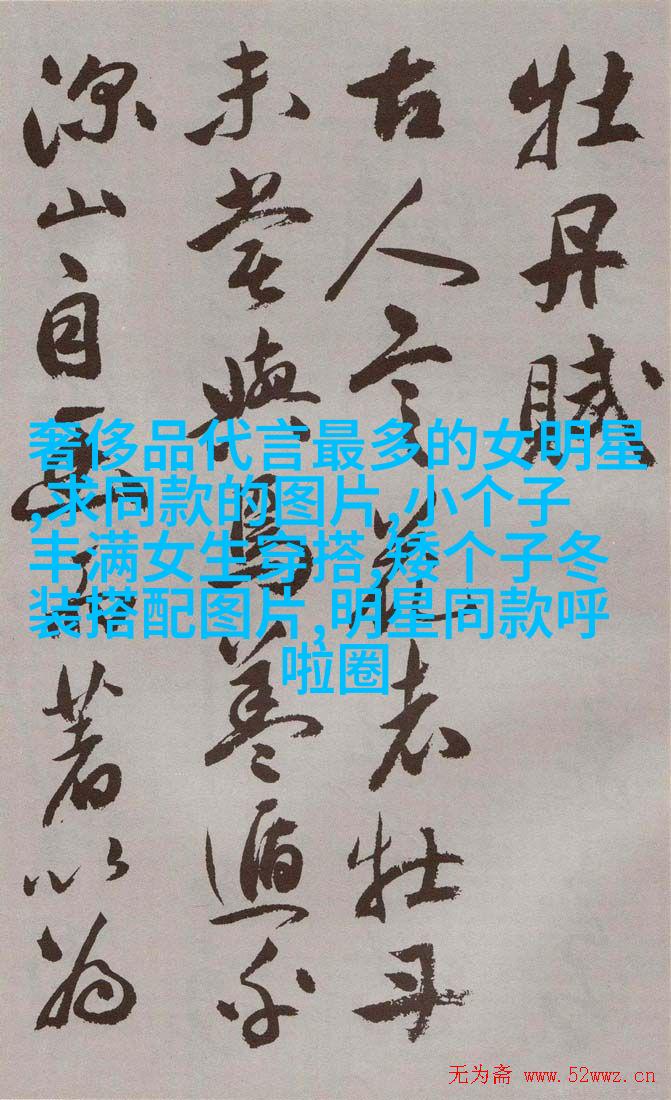 牡丹賦
古人言花者牡丹
未嘗與焉蓋遁於
深山自幽而著以為
奢侈品代言最多的女明星
,求同款的图片,小个子
丰满女生穿搭,矮个子冬
装搭配图片,明星同款呼
啦圈
无为斋 www.52wwz.cn